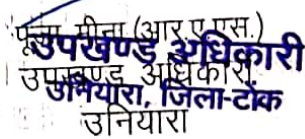 पूजा मीना (आर.ए.एस.)
उपखण्ड अधिकारी
उपखण्ड अधिकारी
उनियारा, जिला-टोंक
उनियारा